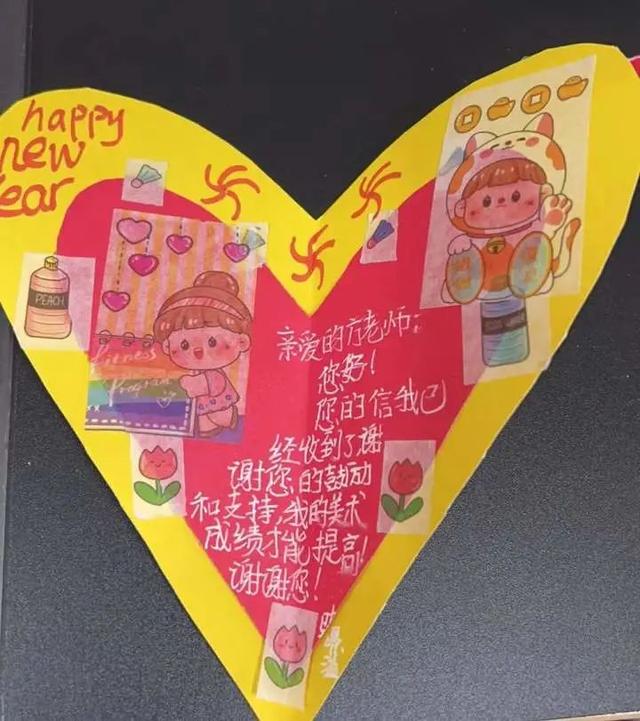 happy
new
Year
PEACH
Fitness
Program
亲爱的方老师:
您好!
您的信我已
经收到了谢
谢您的鼓励
和支持,我的美术
成绩才能提高!
谢谢您!